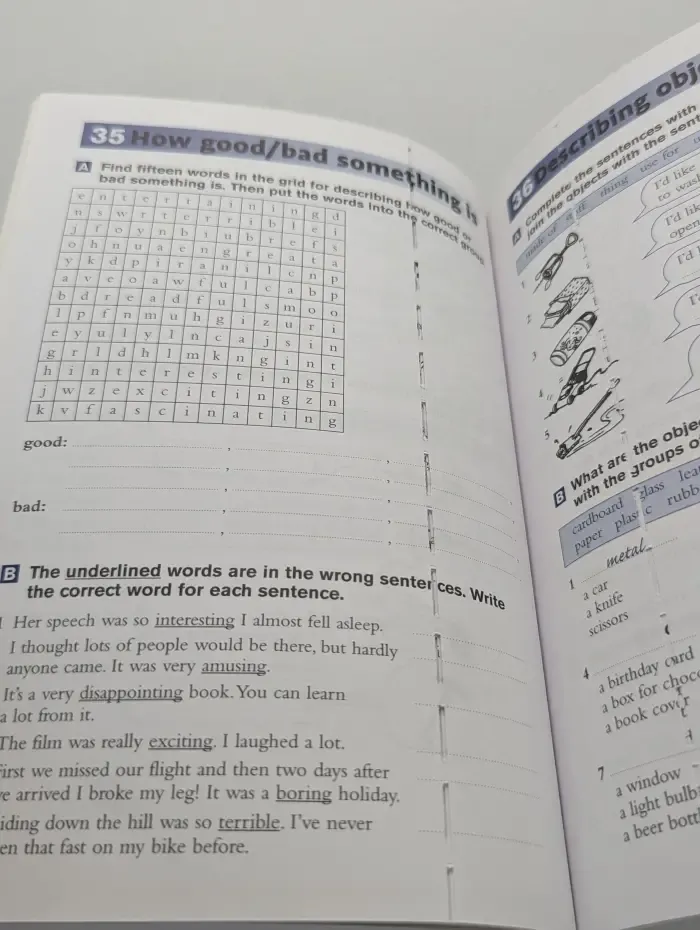 35 How good/bad something is
A Find fifteen words in the grid for describing how good or
bad something is. Then put the words into the correct group.
e n t e r t a i n i n g d
n s w r t e r r i b l e i
j f o y n b i u b r e f s
o h n u a e n g r e a t a
y k d p i r a n i l c n p
a v e o a w f u l c a b p
b d r e a d f u l s m o o
l p f n m u h g i z u r i
e y u l y l n c a j s i n
g r l d h l m k n g i n t
h i n t e r e s t i n g i
j w z e x c i t i n g z n
k v f a s c i n a t i n g
good:
bad:
B The underlined words are in the wrong sentences. Write
the correct word for each sentence.
Her speech was so interesting I almost fell asleep.
I thought lots of people would be there, but hardly
anyone came. It was very amusing.
It's a very disappointing book. You can learn
a lot from it.
The film was really exciting. I laughed a lot.
First we missed our flight and then two days after
we arrived I broke my leg! It was a boring holiday.
iding down the hill was so terrible. I've never
en that fast on my bike before.
36 Describing obj
A Complete the sentences with
join the objects with the sent
made of stuff thing use for
I'd like
to was
I'd lik
open
I'd l
1
2
3
4
5
B What are the obje
with the groups o
cardboard glass lea
paper plastic rubb
1 metal
a car
a knife
scissors
4
a birthday card
a box for choc
a book cover
7
a window
a light bulb
a beer bott